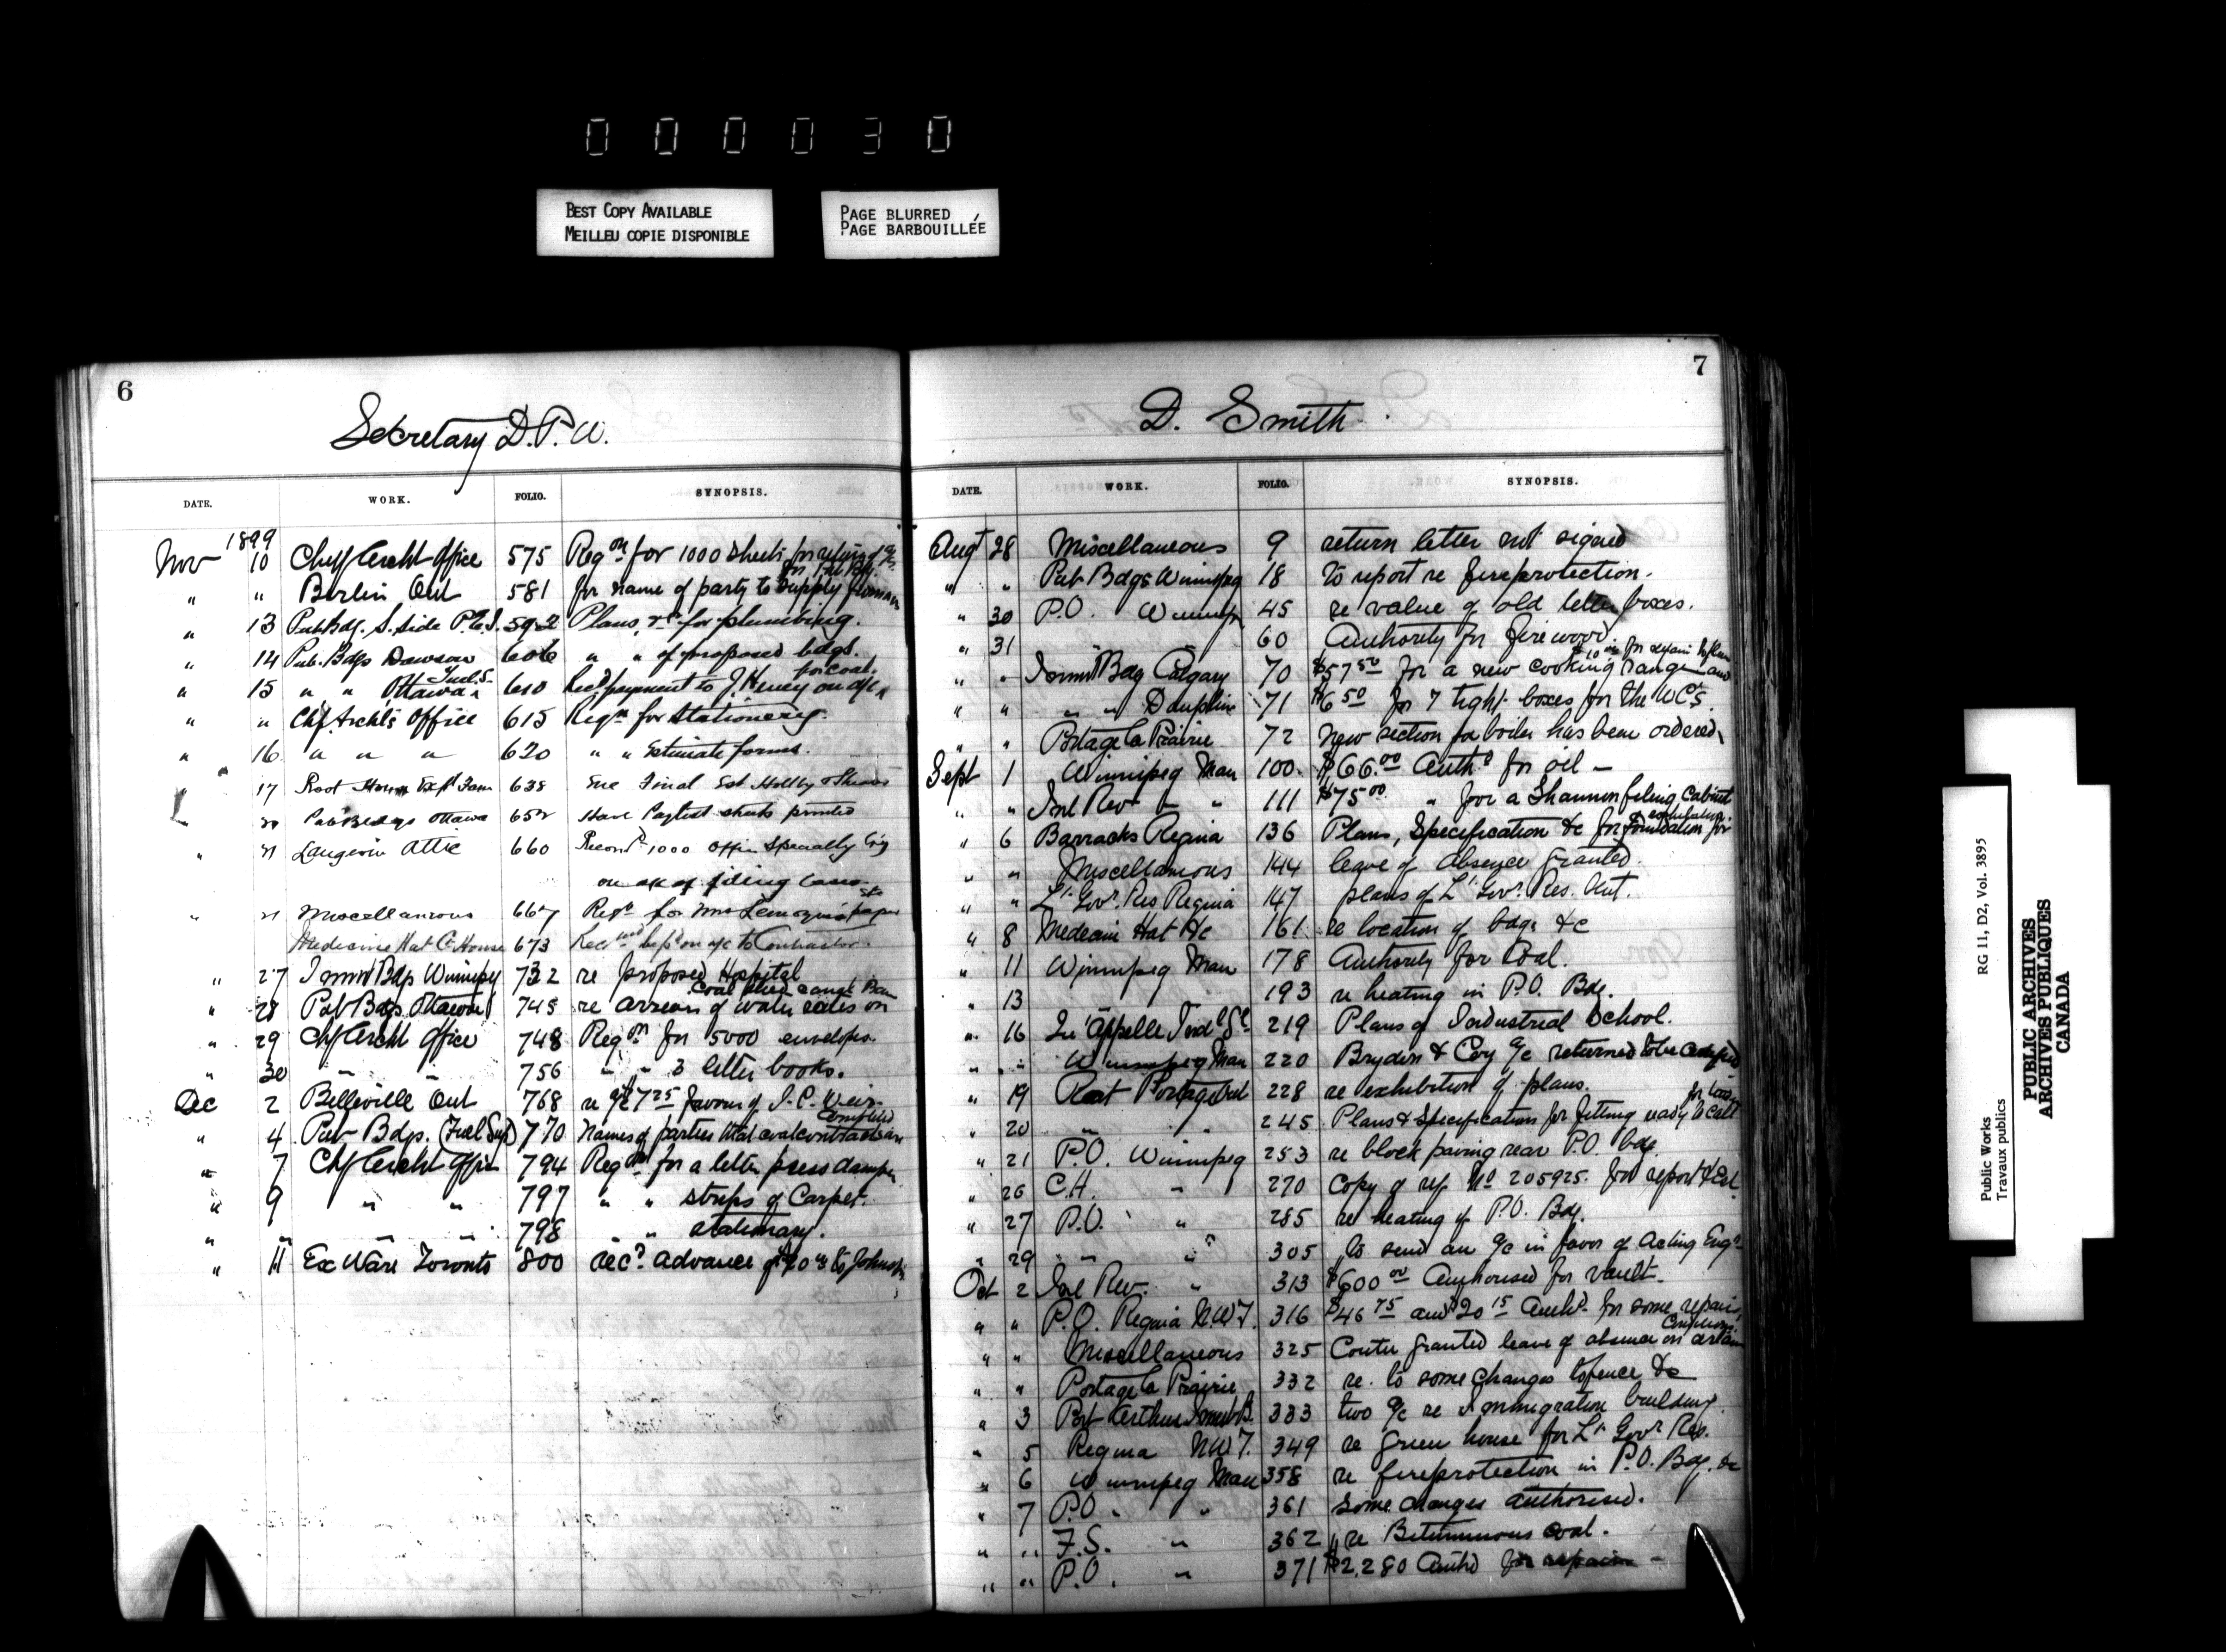 0 0 0 0 3 0
BEST COPY AVAILABLE
MEILLEU COPIE DISPONIBLE
PAGE BLURRED
PAGE BARBOUILLÉE
6
Secretary D.P.W.
DATE. WORK. FOLIO. SYNOPSIS.
1899
Nov 10 Chf Archt Office 575 Reqon for 1000 sheets for
" " Berlin Ont 581 for name of party to supply
" 13 Pub Bdg. S. Side 592 Plans, &c for plumbing.
" 14 Pub. Bdgs Dawson 606 " " of proposed bdgs.
for coal.
" 15 " " Ottawa Fuel S. 610 Recd payment to J. Heney on a/c
" " Chf. Archt's Office 615 Reqn for Stationery.
" 16 " " " 620 " " Estimate forms.
" 17 Root House Expl Farm 638 Final Est
20 Pub Bldgs Ottawa 652 Have Paylist sheets printed
" 21 Langevin Attic 660 1000
on a/c of filing cases
" 21 Miscellaneous 667 Reqn for
Medicine Hat C. House 673 on a/c to Contractor.
" 27 Immn Bdgs Winnipeg 732 re proposed Hospital
" 28 Pub Bdgs Ottawa 745 re arrears of water rates on
" 29 Chf Archt Office 748 Reqon for 5000 envelopes.
" 30 " " 756 " " 3 letter books.
Dec 2 Belleville Ont 768 re a/c $7.25 favour of J. C. Weir
completed
" 4 Pub Bdgs. (Fuel Sup) 770 Names of parties that coal contracts are
" 7 Chf Archt Office 794 Reqon for a letter press damper
" 9 " " 797 " " strips of Carpet.
" " " " 798 " " stationary.
" 11 Ex Ware Toronto 800 recd advance of to Johnston
7
D. Smith
DATE. WORK. FOLIO. SYNOPSIS.
Augt 28 Miscellaneous 9 return letter not signed
" " Pub Bdgs Winnipeg 18 to report re fireprotection.
" 30 P.O. Winnipeg 45 re value of old letter boxes.
" 31 60 Authority for firewood.
" " Immn Bdg Calgary 70 $57.50 for a new cooking range and
" " " " Dauphin 71 $6.50 for 7 tight boxes for the WC's.
" " Portage La Prairie 72 New section for boiler has been ordered.
Sept 1 Winnipeg Man 100 $66.00 Authd for oil —
" " Inl Rev " " 111 $75.00 " for a Shannon filing Cabinet
" 6 Barracks Regina 136 Plans, Specification &c for foundation for
" " Miscellaneous 144 leave of absence granted.
" " Lt. Govr. Res Regina 147 plans of Lt. Govr. Res. Ont.
" 8 Medecine Hat 161 re location of bdgs &c
" 11 Winnipeg Man 178 Authority for Coal.
" 13 193 re heating in P.O. Bdg.
" 16 Qu'Appelle Indl Sc 219 Plans of Industrial School.
" " Winnipeg Man 220 Bryden & Coy a/c returned to be certified
" 19 Rat Portage Ont 228 re exhibition of plans.
" 20 " " 245 Plans & Specification for fitting ready to call
" 21 P.O. Winnipeg 253 re block paving rear P.O. bdg.
" 26 C.H. " 270 Copy of ref No 205925. for report & Est.
" 27 P.O. " 285 re heating of P.O. Bdg.
" 29 " " 305 to send an a/c in favor of Acting Engr
Oct 2 Inl Rev. " 313 $600.00 Authorised for vault.
" " P.O. Regina N.W.T. 316 $46.75 and $20.15 Authd for some repairs
" " Miscellaneous 325 granted leave of absence on certain
" " Portage La Prairie 332 re. to some changes to fence &c
" 3 Port Arthur Immn B. 333 two a/c re Immigration building.
" 5 Regina N.W.T. 349 re green house for Lt Govr Res.
" 6 Winnipeg Man 358 re fireprotection in P.O. Bdg. &c
" 7 P.O. " 361 Some changes authorised.
" " F.S. " 362 re Bituminous Coal.
" " P.O. " 371 $2,280 Authd for repairs —
Public Works RG 11, D2, Vol. 3895
Travaux publics
PUBLIC ARCHIVES
ARCHIVES PUBLIQUES
CANADA